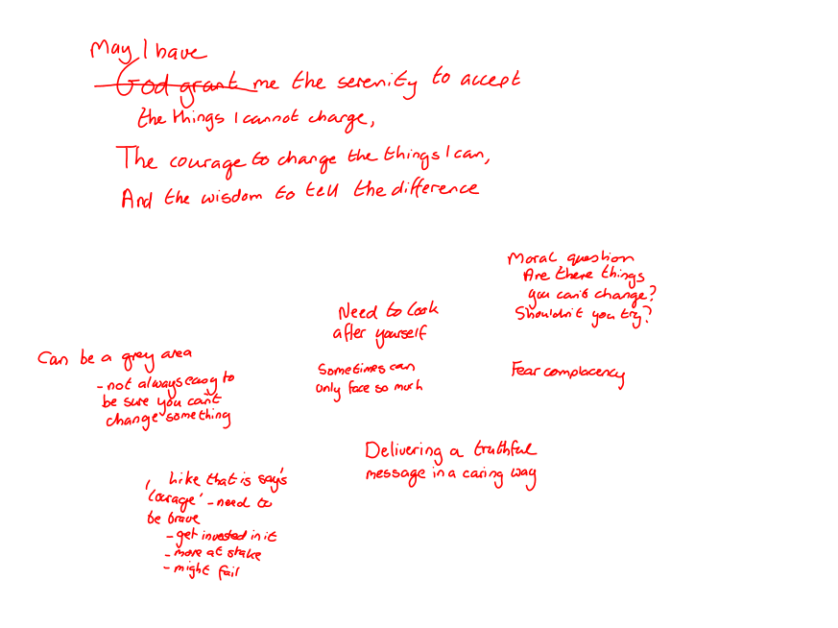 May I have
God grant me the serenity to accept
the things I cannot change,
The courage to change the things I can,
And the wisdom to tell the difference
Moral question
Are there things
you can't change?
Shouldn't you try?
Need to look
after yourself
Can be a grey area
- not always easy to
be sure you can't
change something
Sometimes can
only face so much
Fear complacency
Delivering a truthful
message in a caring way
Like that is say's
'Courage' - need to
be brave
- get invested in it
- more at stake
- might fail